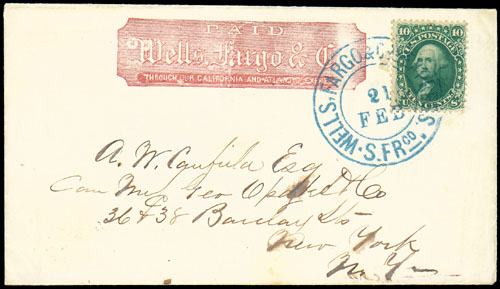 PAID
Wells, Fargo & Co
THROUGH OUR CALIFORNIA AND ATLANTIC EXPRESS
WELLS, FARGO & C
21
FEB
S. FRCO.
10 10
U.S. POSTAGE
TEN CENTS
U S
A. W. Canfield Esq
Care Geo & Co
36 & 38 Barclay St
New York
N. Y